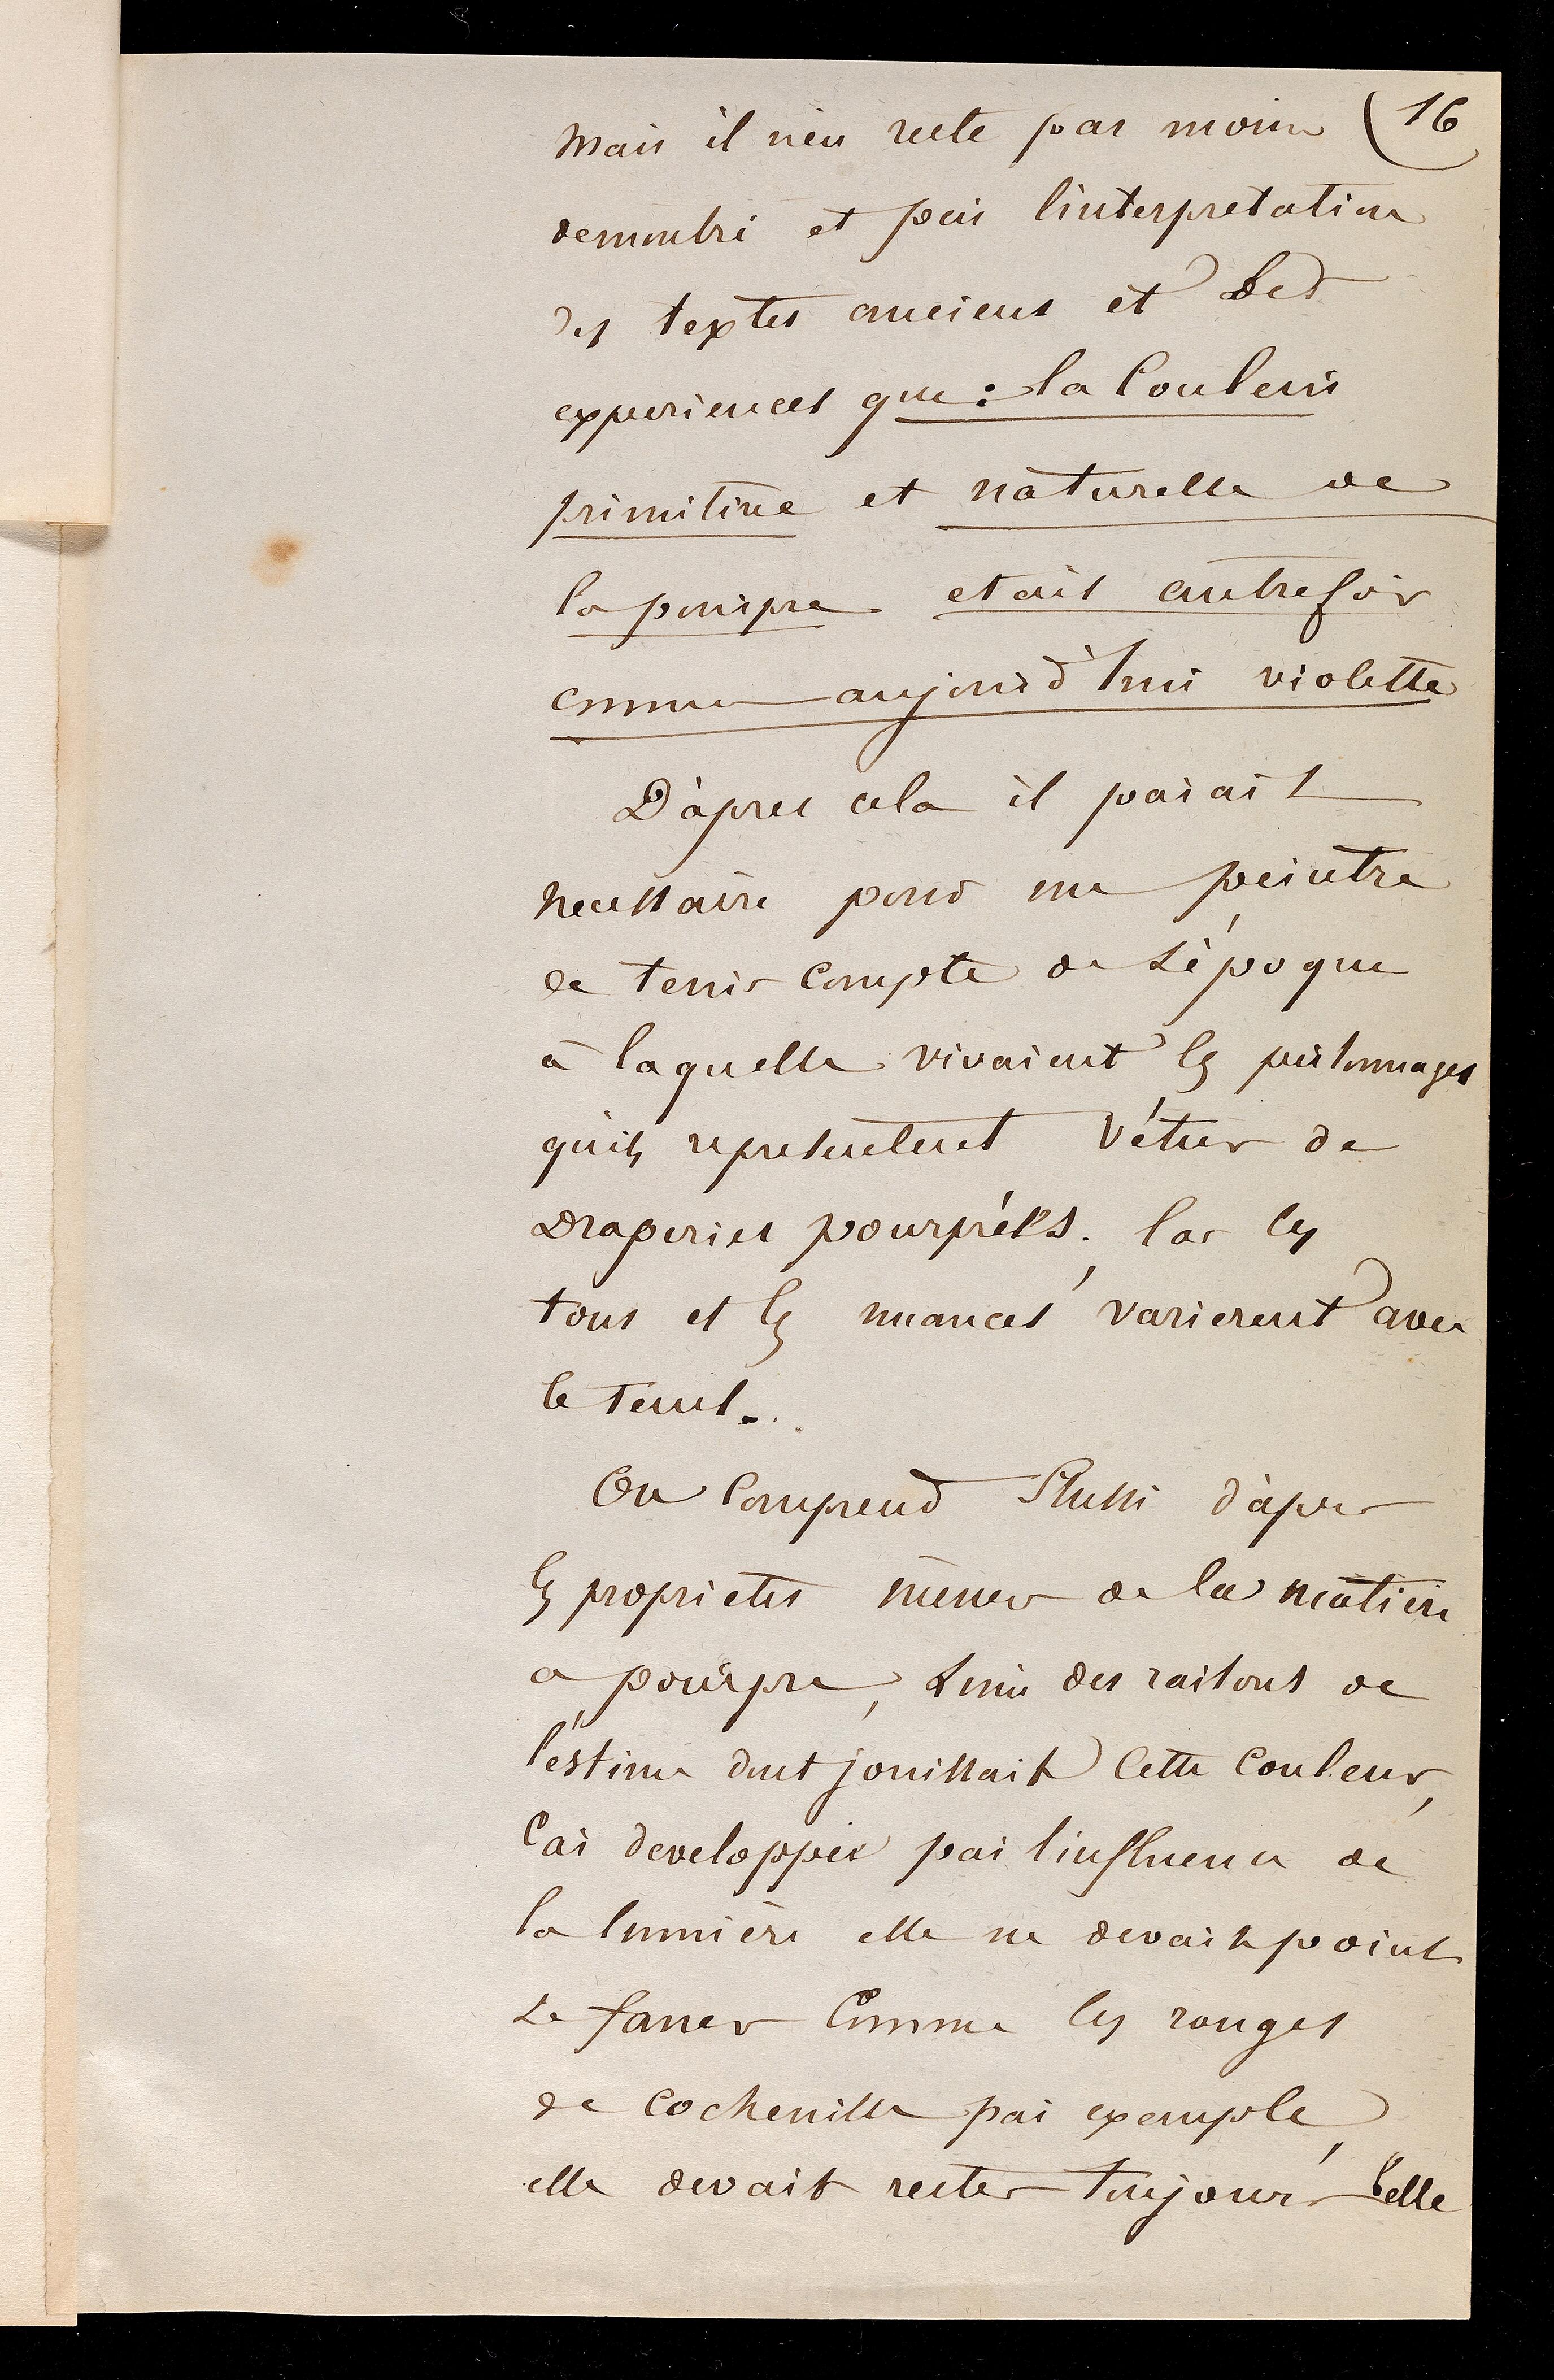 Mais il n'en reste pas moins (16
demontré et par l'interpretation
des textes anciens et des
experiences que : la Couleur
primitive et naturelle de
la pourpre etait autrefois
comme aujourd'hui violette
D'après cela il parait
necessaire pour un peintre
de tenir Compte de l'époque
à laquelle vivaient les personnages
qu'ils representent vêtus de
Draperies pourprées. Car les
tons et les nuances varierent avec
le tems.
On Comprend Aussi d'après
les proprietes mêmes de la matière
a pourpre, l'une des raisons de
l'estime dont jouissait Cette Couleur,
Car developpée par l'influence de
la lumière elle ne devait point
se faner Comme les rouges
de Cochenille par exemple,
elle devait rester toujours belle